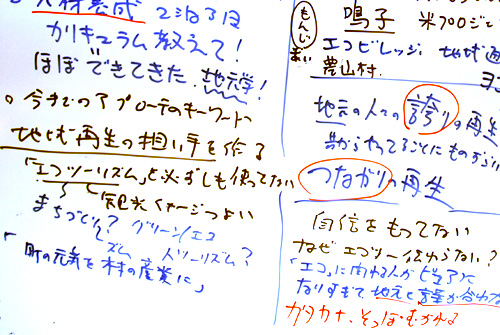 人材養成 2泊3日
カリキュラム教えて!
ほぼできてきた 地元学!
○今までのアプローチのキーワード
地域再生の担い手を作る
「エコツーリズム」を必ずしも使ってない
観光イメージつよい
まちづくり? グリーン/エコ
ツーリズム?
「町の元気を村の産業に」
もんじ
まい
鳴子 米プロジ
エコビレッジ 地域
農山村
地元の人々の誇りの再生
つながりの再生
自信をもってない
なぜエコツー伝わらない?
「エコ」に関わる人がピュアに
なりすぎて地元と言葉が合わな
カタカナ、そっぽむかれる